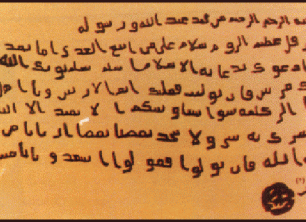 الرحمن الرحيم من محمد عبد الله ورسوله
عظيم الروم سلام على من اتبع الهدى اما بعد
ادعوك بدعاية الاسلام اسلم تسلم يوتك الله
مرتين فان توليت فعليك اثم الاريسيين ويا
الى كلمة سوا بيننا وبينكم الا نعبد الا الله
به شيا ولا يتخذ بعضنا بعضا اربابا من
الله فان تولوا فقولوا اشهدوا بانا